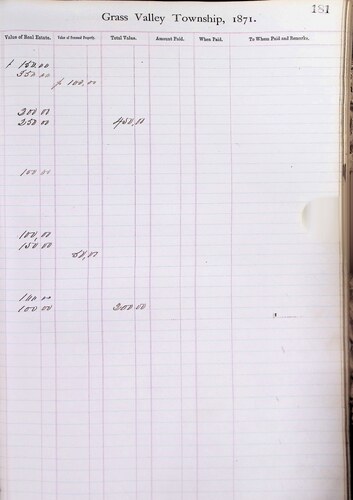 181
Grass Valley Township, 1871.
Value of Real Estate. Value of Personal Property. Total Value. Amount Paid. When Paid. To Whom Paid and Remarks.
350,00
100,00
200 00
250 00 450,00
100 00
100,00
150 00
50,00
100 00
100 00 200 00